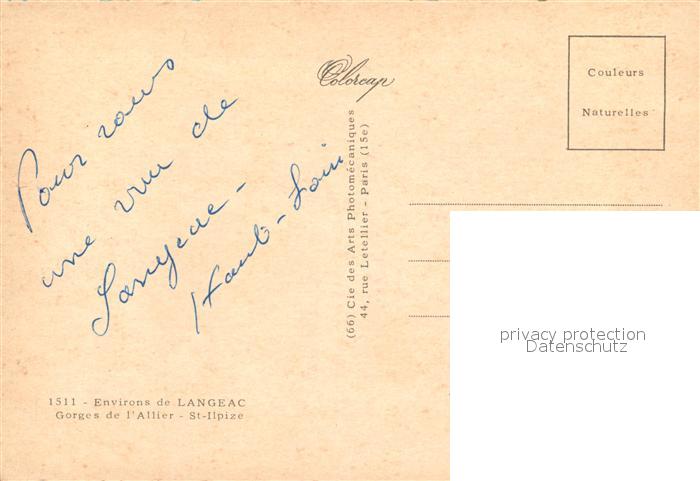 Pour vous
une vue de
Langeac -
Haute-Loire
Colorcap
(66) Cie des Arts Photomécaniques
44, rue Letellier - Paris (15e)
Couleurs
Naturelles
1511 - Environs de LANGEAC
Gorges de l'Allier - St-Ilpize
privacy protection
Datenschutz